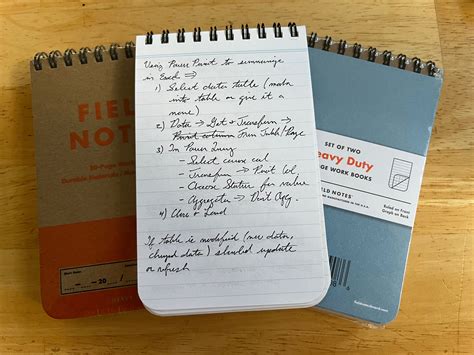 Using Power Pivot to summarize
in Excel ⇒
1) Select data table (make
into table or give it a
name)
2) Data → Get & Transform →
From Table/Range
3) In Power Query
- Select column
- Transform → Pivot Col
- Choose Status for value
- Aggregate → Don't Agg.
4) & Load
If table is modified (new data,
changed data) should update
or refresh
FIELD
NOTES
80-Page
Durable Materials
20
SET OF TWO
Heavy Duty
PAGE WORK BOOKS
FIELD NOTES
Ruled on Front
Graph on Back